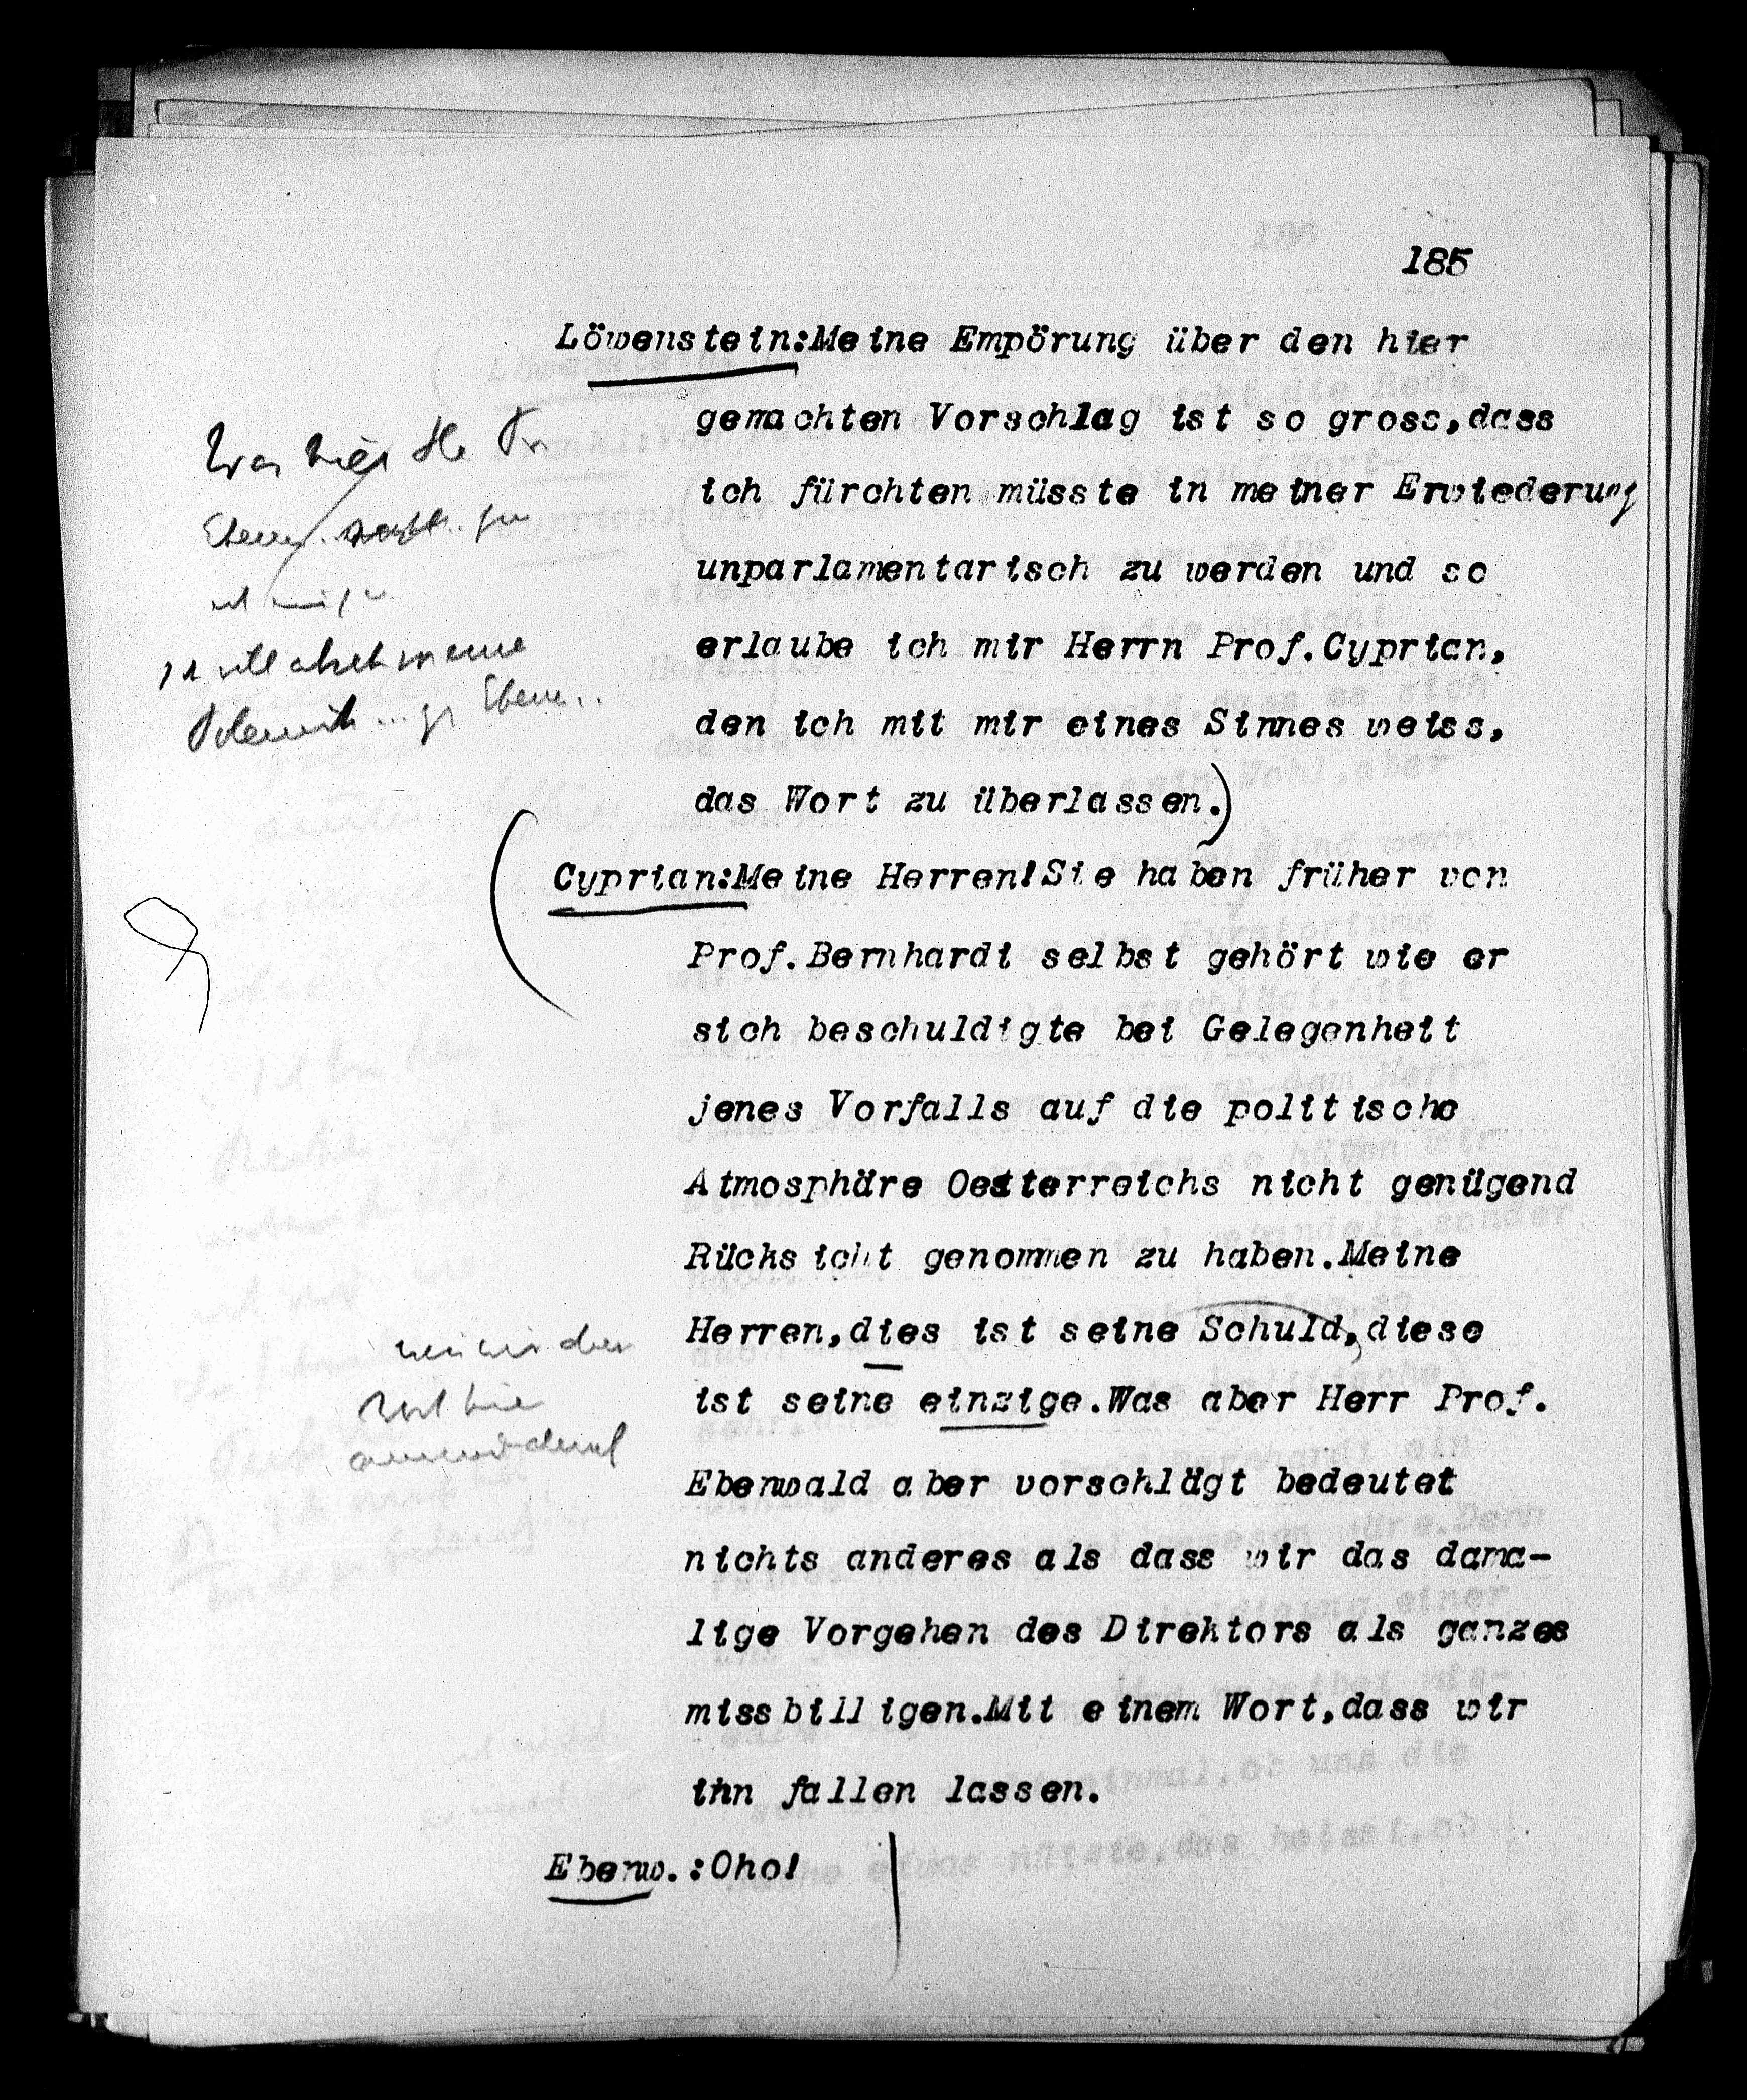 185
Löwenstein:Meine Empörung über den hier
gemachten Vorschlag ist so gross,dass
ich fürchten müsste in meiner Erwiederung
unparlamentarisch zu werden und so
erlaube ich mir Herrn Prof.Cyprian,
den ich mit mir eines Sinnes weiss,
das Wort zu überlassen.)
(Cyprian:Meine Herren!Sie haben früher von
Prof.Bernhardi selbst gehört wie er
sich beschuldigte bei Gelegenheit
jenes Vorfalls auf die politische
Atmosphäre Oesterreichs nicht genügend
Rücksicht genommen zu haben.Meine
Herren,dies ist seine Schuld,diese
ist seine einzige.Was aber Herr Prof.
Ebenwald aber vorschlägt bedeutet
nichts anderes als dass wir das dama-
lige Vorgehen des Direktors als ganzes
missbilligen.Mit einem Wort,dass wir
ihn fallen lassen.
Ebenw.:Oho!